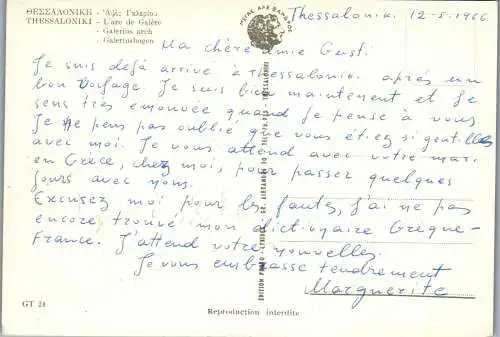 ΘΕΣΣΑΛΟΝΙΚΗ - Ἁψὶς Γαλερίου
THESSALONIKI - L'arc de Galère
- Galerius arch
- Galeriusbogen
ΜΕΓΑΣ ΑΛΕΞΑΝΔΡΟΣ
Thessaloniki 12-5-1966
Ma chère amie Gusti
Je suis dejà arrivé à Thessalonia après un
bon Voyage. Je suis bien maintenent et Je
sens très emouvée quand Je pense à vous
Je ne peus pas oublié que vous étiez si gentilles
avec moi. Je vous attend avec votre mari
en Grèce, chez moi, pour passer quelques
jours avec nous.
Excusez moi pour les fautes, j'ai ne pas
encore trouvé mon dictionaire Grèque-
France. J'attend votre nouvelles.
Je vous embrasse tendrement
Marguerite
GT 24
Reproduction interdite